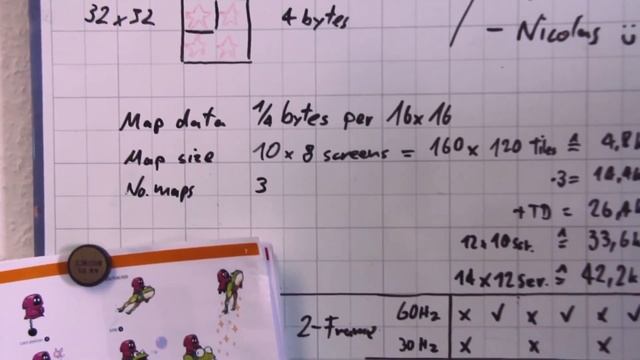 32 x 32 4 bytes
/ - Nicolas
Map data 1/4 bytes per 16x16
Map size 10 x 8 screens = 160 x 120 Tiles ≙ 4,8k
·3= 14,4k
No. maps 3
+TD = 26,4k
12x10 Scr. ≙ 33,6k
14x12 Scr. ≙ 42,2k
2-Frame 60Hz x ✓ x ✓ x ✓
30Hz x x x